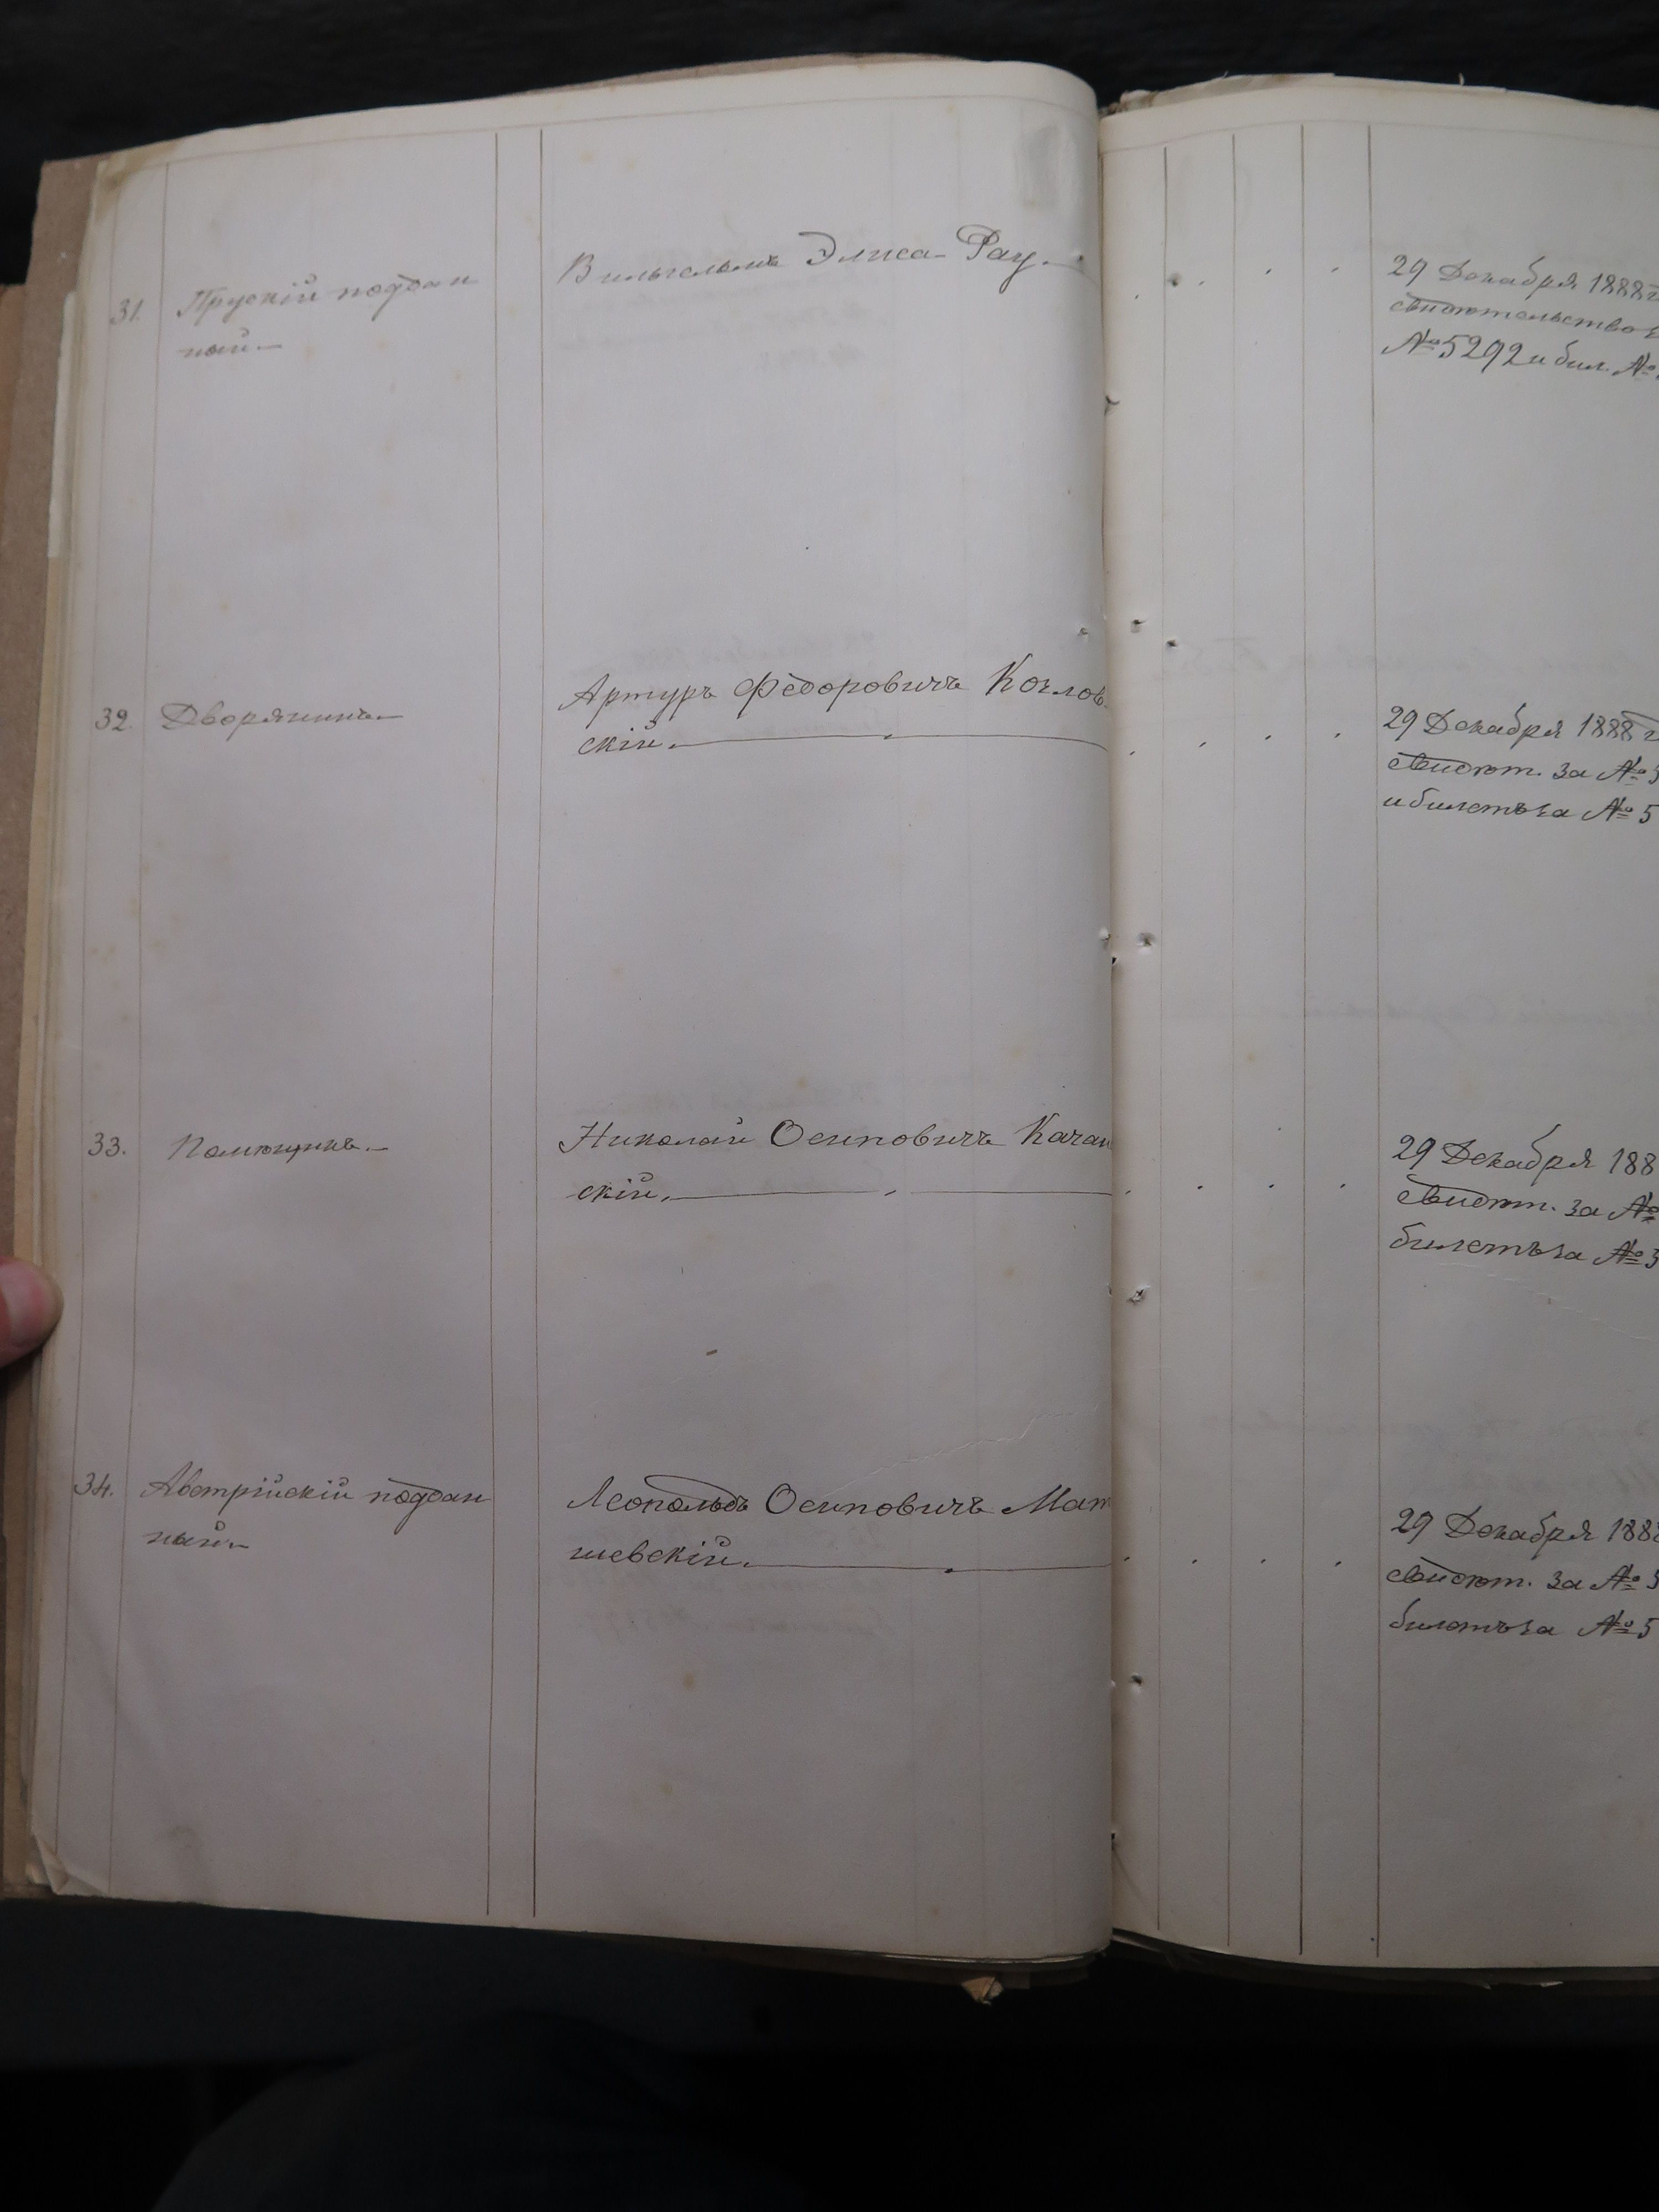 31. Прускій поддан
ный.—
Вильгельмъ Элиса- Рау.—
29 Декабря 1888 г
свидѣтельство з
№ 5292 и бил. №
32. Дворянинъ.—
Артуръ Ѳедоровичъ Козлов-
скій.—
29 Декабря 1888 г
свидѣт. за № 5
и билетъ за № 5
33. Помѣщикъ.—
Николай Осиповичъ Качан
скій.—
29 Декабря 188
свидѣт. за №
билетъ за № 5
34. Австрійскій поддан
ный.—
Леопольдъ Осиповичъ Мат
шевскій.—
29 Декабря 1888
свидѣт. за № 5
билетъ за № 5